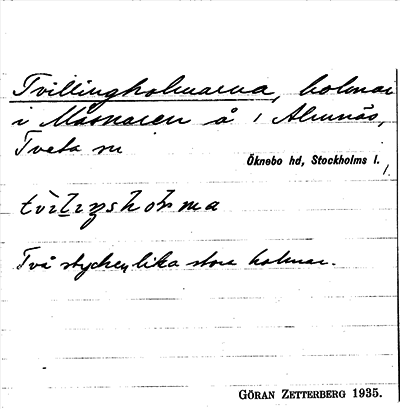 Tvillingholmarna, holmar
i Måsnaren å 1 Almnäs,
Tveta sn
Öknebo hd, Stockholms l.
Två stycken, lika stora holmar.
GÖRAN ZETTERBERG 1935.